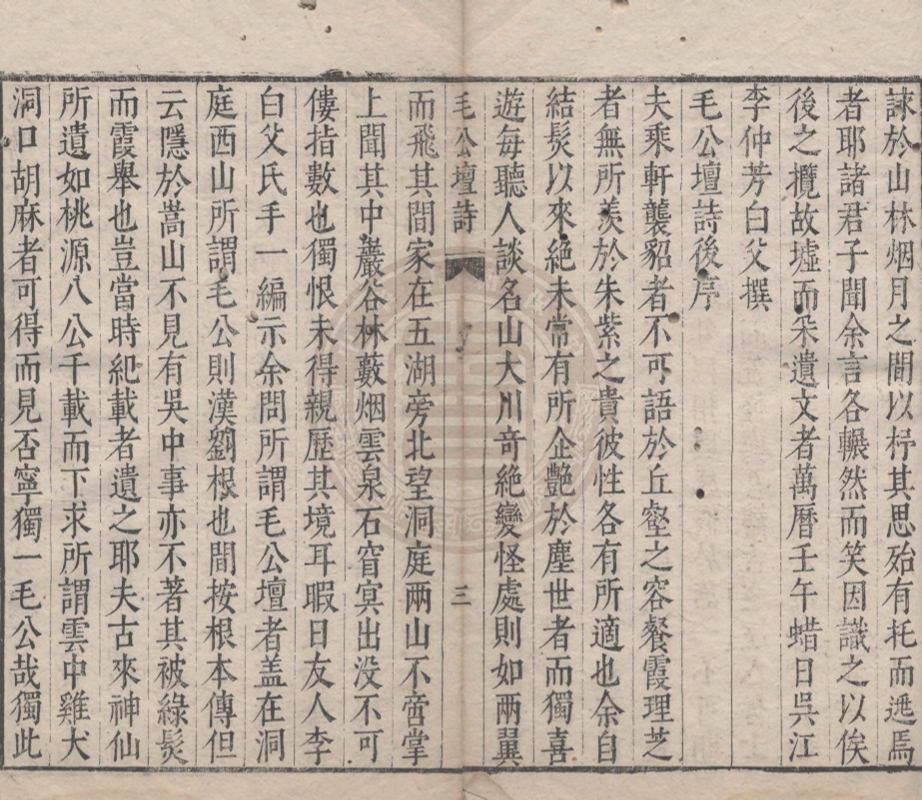 諫於山林烟月之間以抒其思殆有托而逃焉
者耶諸君子聞余言各囅然而笑因識之以俟
後之攬故墟而朵遺文者萬曆壬午蜡日吳江
李仲芳白父撰
毛公壇詩後序
夫乘軒襲貂者不可語於丘壑之容餐霞理芝
者無所羡於朱紫之貴彼性各有所適也余自
結髮以來絕未常有所企艷於塵世者而獨喜
遊每聽人談名山大川竒絕變怪處則如兩翼
毛公壇詩
三
而飛其間家在五湖旁北望洞庭兩山不啻掌
上聞其中巖谷林藪烟雲泉石窅冥出没不可
僂指數也獨恨未得親歷其境耳暇日友人李
白父氏手一編示余問所謂毛公壇者盖在洞
庭西山所謂毛公則漢劉根也間按根本傳但
云隱於嵩山不見有吳中事亦不著其被綠髮
而霞舉也豈當時紀載者遺之耶夫古來神仙
所遺如桃源八公千載而下求所謂雲中雞犬
洞口胡麻者可得而見否寧獨一毛公哉獨此